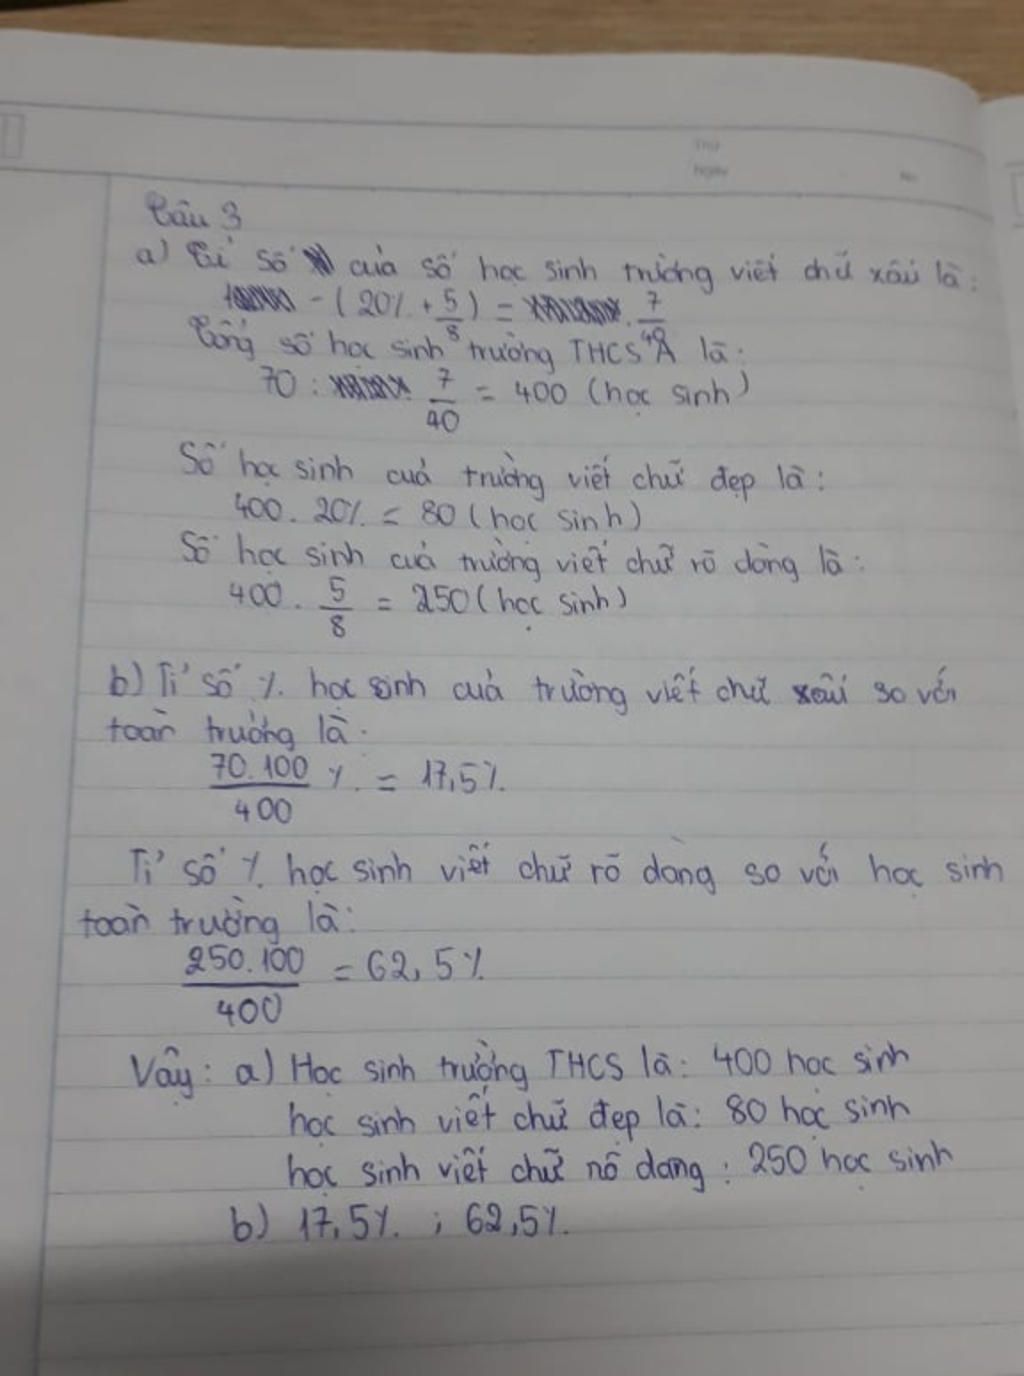 Thứ
Ngày
No.
Câu 3
a) Tỉ số của số học sinh trường viết chữ xấu là:
- (20% + 5/8) = 7/40
Tổng số học sinh trường THCS A là:
70 : 7/40 = 400 (học sinh)
Số học sinh cuả trường viết chữ đẹp là:
400 . 20% = 80 (học sinh)
Số học sinh cuả trường viết chữ rõ dàng là:
400 . 5/8 = 250 (học sinh)
b) Tỉ số % học sinh cuả trường viết chữ xấu so với
toàn trường là:
70.100/400 % = 17,5%
Tỉ số % học sinh viết chữ rõ dàng so với học sinh
toàn trường là:
250.100/400 = 62,5%
Vậy: a) Học sinh trường THCS là: 400 học sinh
học sinh viết chữ đẹp là: 80 học sinh
học sinh viết chữ rõ dang : 250 học sinh
b) 17,5% ; 62,5%